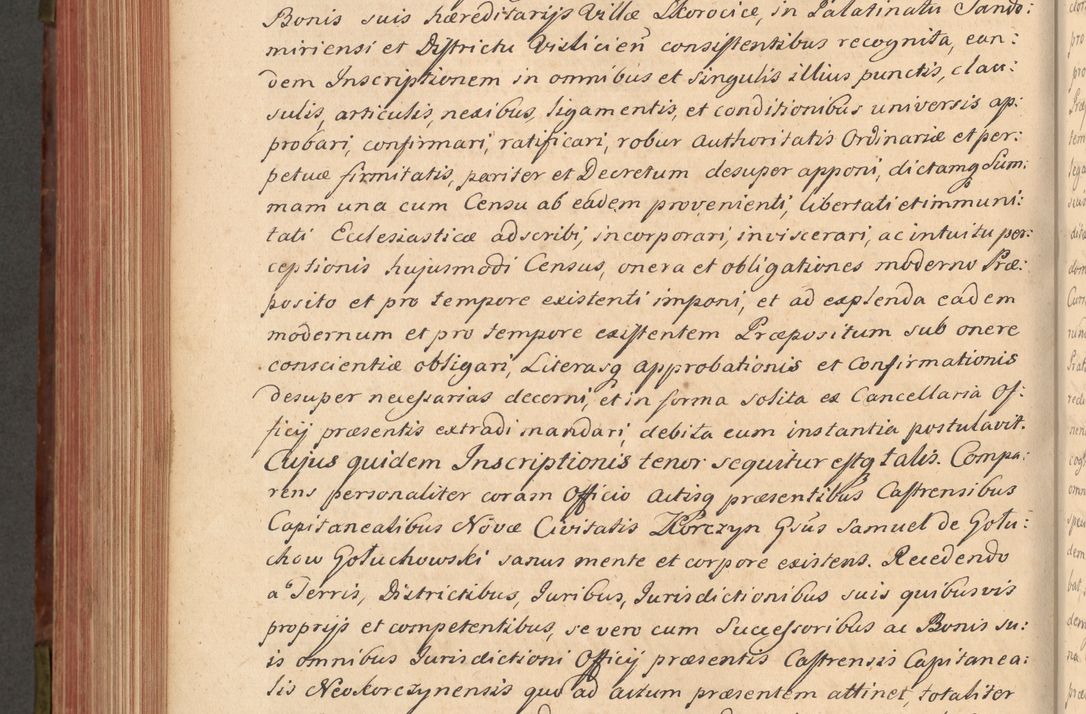 Bonis suis hæreditarijs Villæ Skorocice, in Palatinatu Sando:
miriensi et Districtu Vislicien̄ consistentibus recognita, ean:
dem Inscriptionem in omnibus et singulis illius punctis, clau:
sulis, articulis, nexibus, ligamentis, et conditionibus universis ap:
probari, confirmari, ratificari, robur authoritatis Ordinariæ et per:
petuæ firmitatis, pariter et Decretum desuper apponi, dictamq Sum:
mam una cum Censu ab eadem provenienti, libertati et immuni:
tati Ecclesiasticæ adscribi, incorporari, inviscerari, ac intuitu per:
ceptionis hujusmodi Census, onera et obligationes moderno Præ:
posito et pro tempore existenti imponi, et ad explenda eadem
modernum et pro tempore existentem Præpositum sub onere
conscientiæ obligari, Literasq approbationis et Confirmationis
desuper necessarias decerni, et in forma solita ex Cancellaria Of:
ficij præsentis extradi mandari, debita cum instantia postulavit.
Cujus quidem Inscriptionis tenor sequitur estq talis. Compa:
rens personaliter coram Officio Actisq præsentibus Castrensibus
Capitanealibus Novæ Civitatis Korczyn Gsūs Samuel de Gołu:
chow Gołuchowski sanus mente et corpore existens. Recedendo
a Terris, Districtibus, Juribus, Jurisdictionibus suis quibusvis
proprijs et competentibus, se vero cum Successoribus ac Bonis su:
is omnibus Jurisdictioni Officij præsentis Castrensis Capitanea:
lis Neokorczynensis quo ad actum præsentem attinet, totaliter